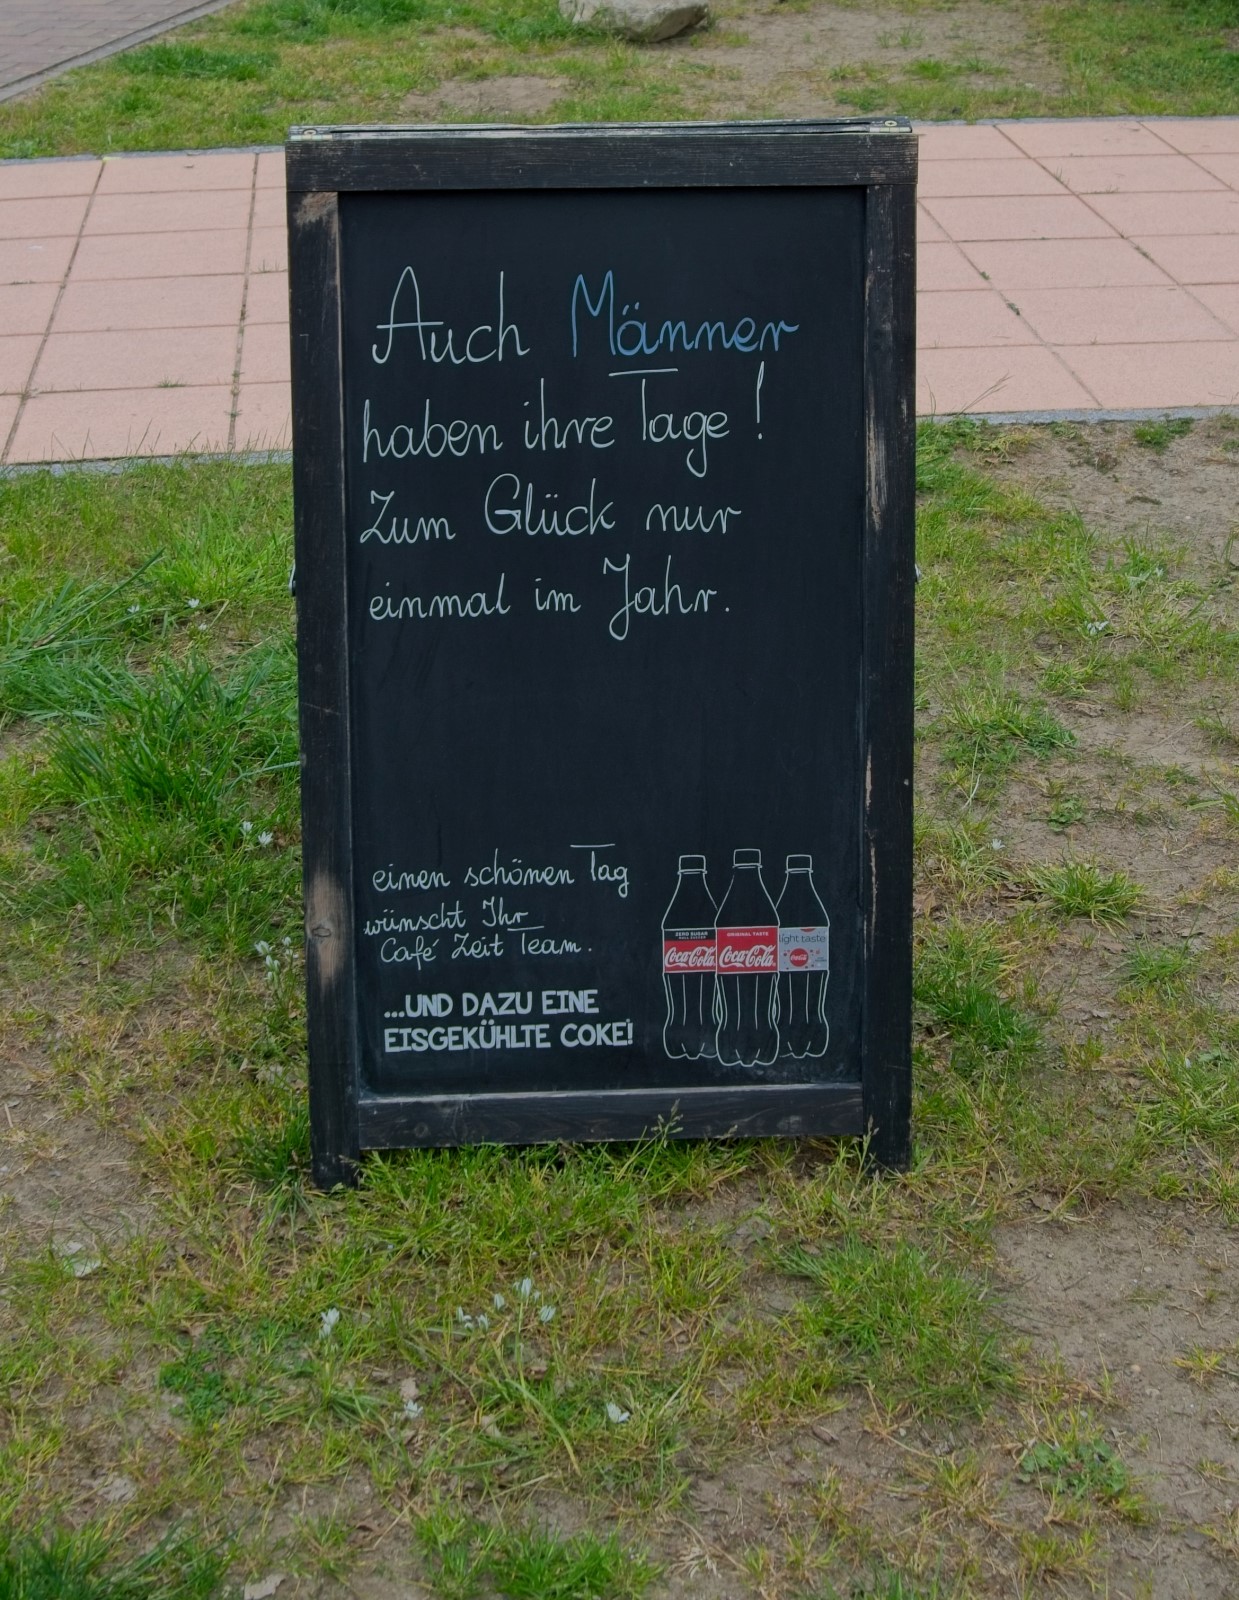 Auch Männer
haben ihre Tage!
Zum Glück nur
einmal im Jahr.
einen schönen Tag
wünscht Ihr
Café Zeit Team.
...UND DAZU EINE
EISGEKÜHLTE COKE!
ZERO SUGAR
Coca-Cola
ORIGINAL TASTE
Coca-Cola
light taste
Coca-Cola